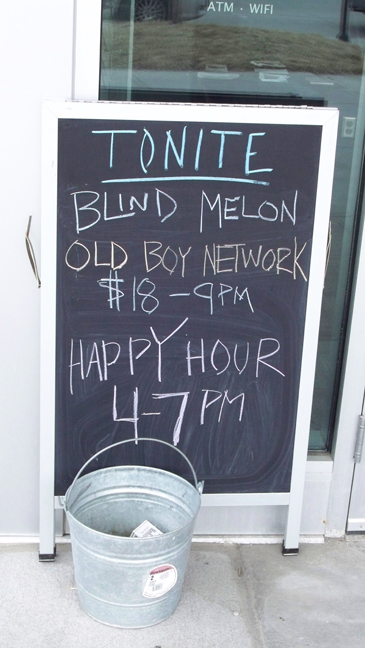 ATM · WIFI
TONITE
BLIND MELON
OLD BOY NETWORK
$18 - 9PM
HAPPY HOUR
4-7 PM